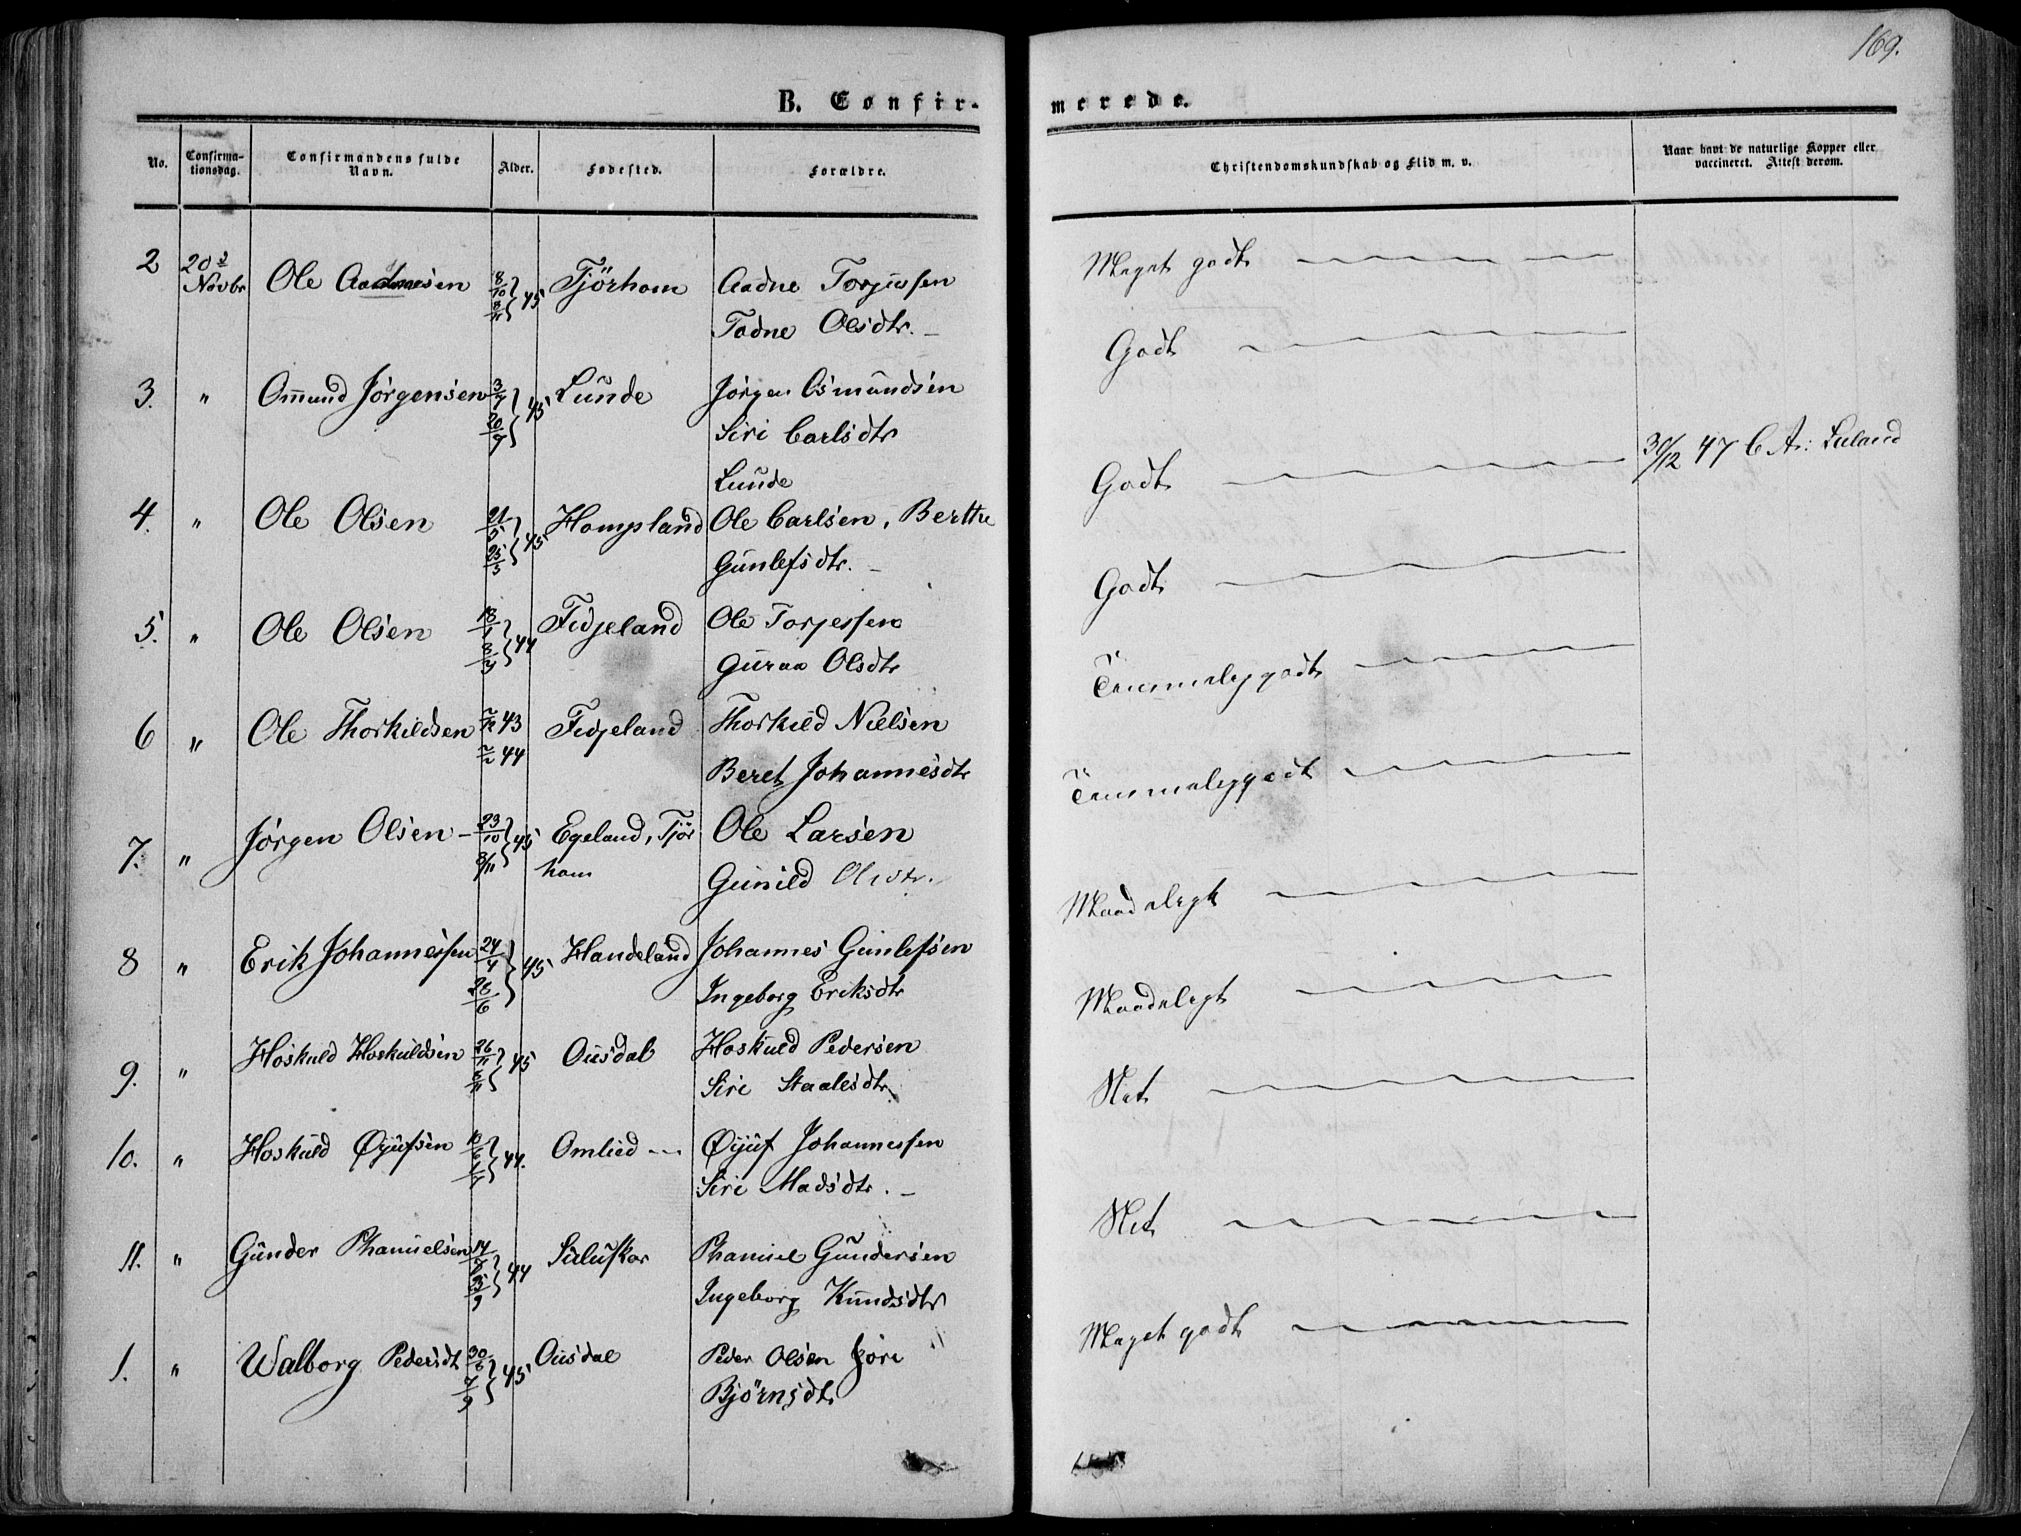 169.
B. Confirmerede.
No. Confirmationsdag. Confirmandens fulde Navn. Alder. Fødested. Forældre. Christendomskundskab og Flid m. v. Naar havt de naturlige Kopper eller vaccineret. Attest derom.
2 20de Novbr Ole Aadnesen 8/10 8/11 45 Tjörhom Aadne Torjussen Meget godt
Todne Olsdtr.
Godt
3. " Omund Jörgensen 3/7 20/9 45 Lunde Jörgen Osmundsen
Siri Carlsdtr
Lunde
Godt 30/12 47 C. A.: Lieland
4. " Ole Olsen 21/5 25/5 45 Hompland Ole Carlsen, Berthe
Gunlefsdtr.
Godt
5. " Ole Olsen 18/1 8/4 44 Fidjeland Ole Torjessen
Guroa Olsdtr
Temmelig godt
6 " Ole Thorkildsen 43 44 Fidjeland Thorkild Nielsen
Beret Johannesdtr
Temmelig godt
7. " Jörgen Olsen 23/10 8/11 45 Egeland, Tjörhom Ole Larsen
Gunild Olsdtr.
Maadeligt
8 " Erik Johannessen 24/4 28/6 45 Handeland Johannes Gunlefsen
Ingeborg Eriksdtr
Maadeligt
9. " Hoskuld Hoskuldsen 45 Ousdal Hoskuld Pedersen
Siri Staalesdtr
Net
10. " Hoskuld Øyufsen 44. Omlied Øyuf Johannessen
Siri Madsdtr.
Net
11. " Gunder Phanuelsen 14/8 44 Siluskar Phanuel Gundersen
Ingeborg Knudsdtr
Meget godt
1. " Walborg Pedersdt 30/6 7/9 45 Ousdal Peder Olsen Jöre
Björnsdtr